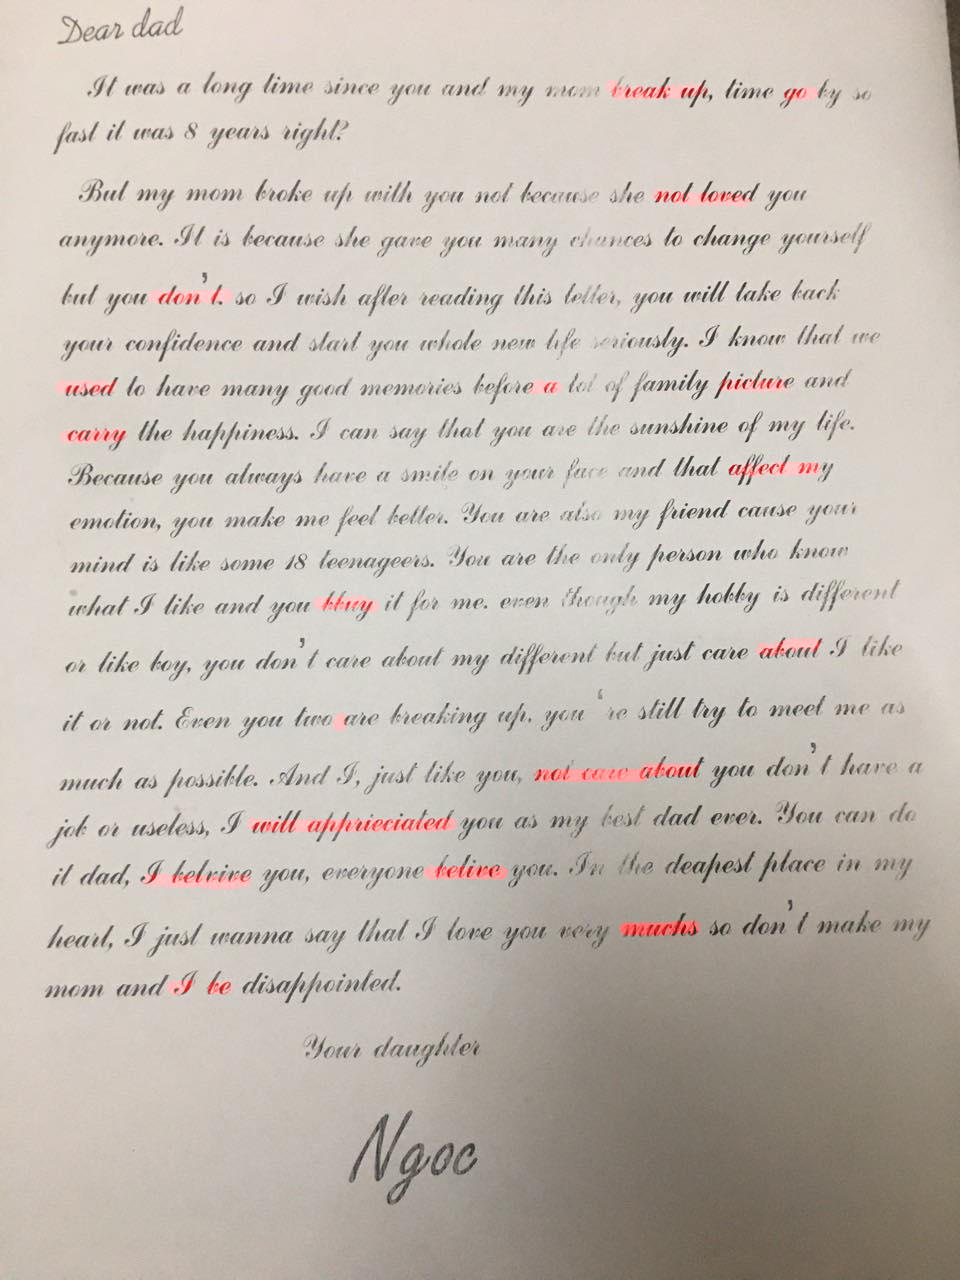 Dear dad
It was a long time since you and my mom break up, time go by so
fast it was 8 years right?
But my mom broke up with you not because she not loved you
anymore. It is because she gave you many chances to change yourself
but you don't. so I wish after reading this letter, you will take back
your confidence and start you whole new life seriously. I know that we
used to have many good memories before a lot of family picture and
carry the happiness. I can say that you are the sunshine of my life.
Because you always have a smile on your face and that affect my
emotion, you make me feel better. You are also my friend cause your
mind is like some 18 teenageers. You are the only person who know
what I like and you bbuy it for me. even though my hobby is different
or like boy, you don't care about my different but just care about I like
it or not. Even you two are breaking up, you 're still try to meet me as
much as possible. And I, just like you, not care about you don't have a
job or useless, I will apprieciated you as my best dad ever. You can do
it dad, I belvive you, everyone belive you. In the deapest place in my
heart, I just wanna say that I love you very muchs so don't make my
mom and I be disappointed.
Your daughter
Ngoc